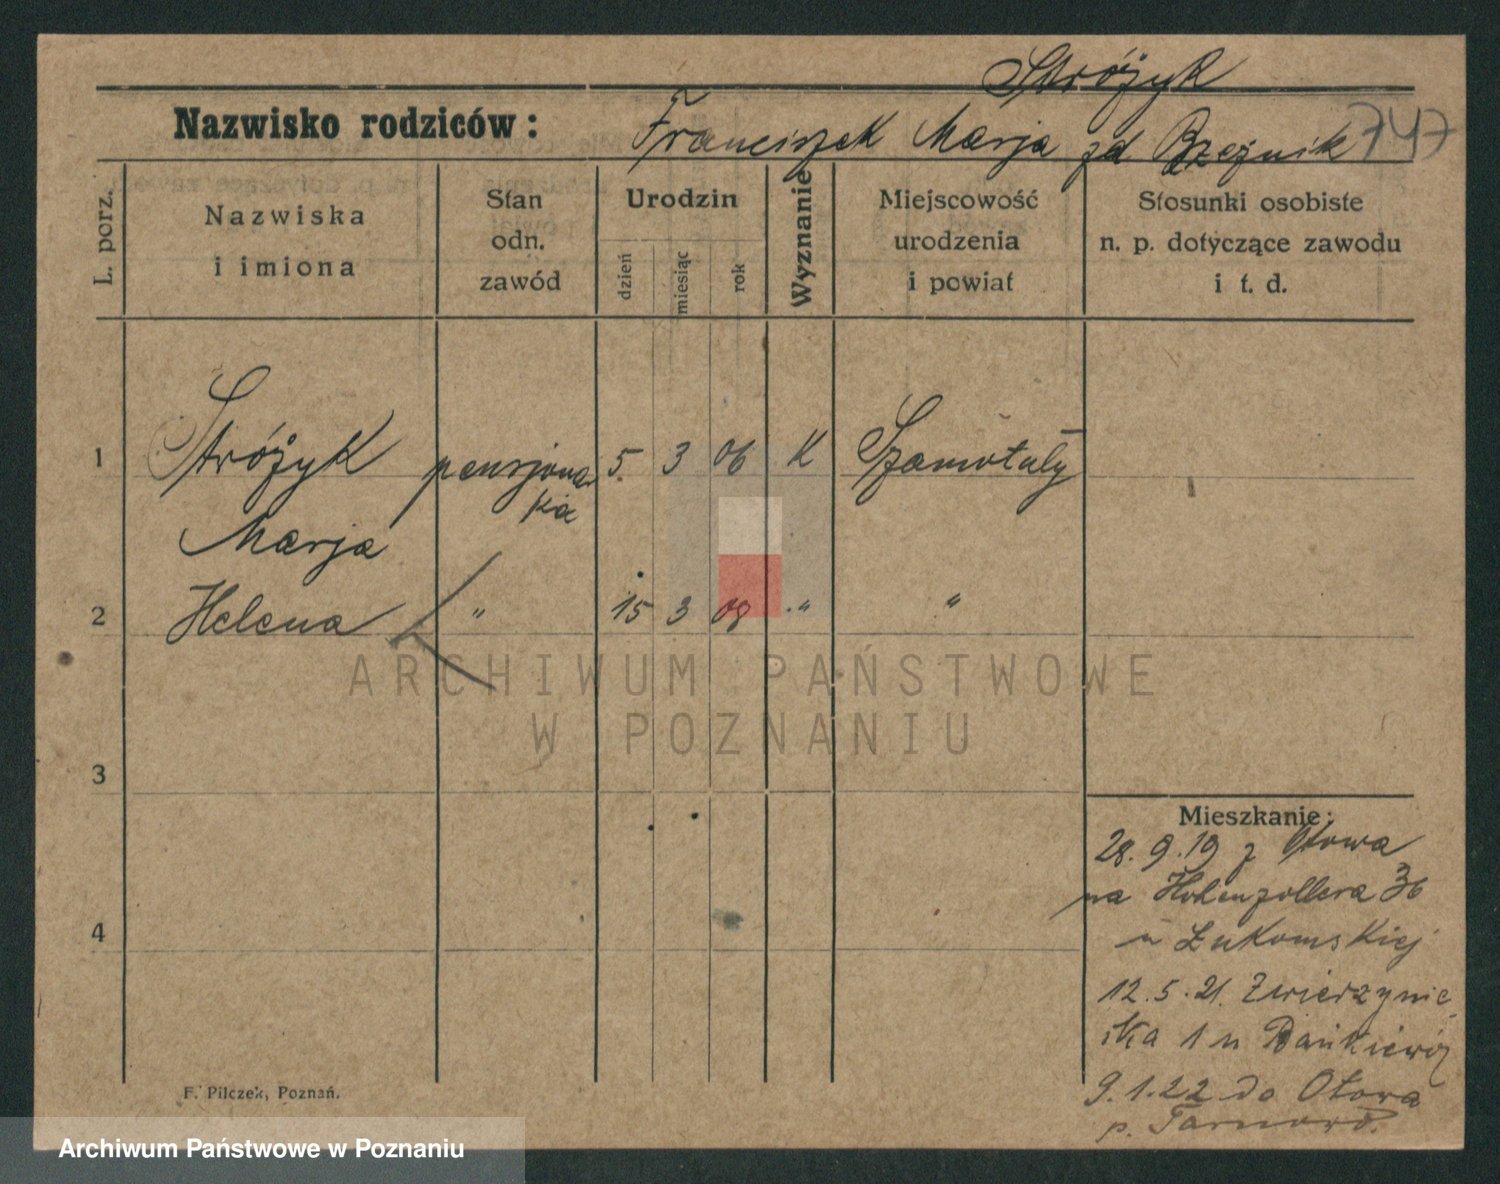 Stróżyk
Nazwisko rodziców: Franciszek Marja zd Brzeźnik 747
L. porz.
Nazwiska
i imiona
Stan
odn.
zawód
Urodzin
dzień
miesiąc
rok
Wyznanie
Miejscowość
urodzenia
i powiat
Stosunki osobiste
n. p. dotyczące zawodu
i t. d.
1 Stróżyk pensjona- 5 3 06 K Szamotuły
rka
Marja
2 Helena " 15 3 08 " "
ARCHIWUM PAŃSTWOWE
W POZNANIU
3
4
Mieszkanie:
28. 9. 19 z Otowa
na Hohenzollera 36
u Łukomskiej
12. 5. 21. Zwierzyniec
ka 1 u
9. 1. 22 do Otowa
p.
F. Pilczek, Poznań.
Archiwum Państwowe w Poznaniu